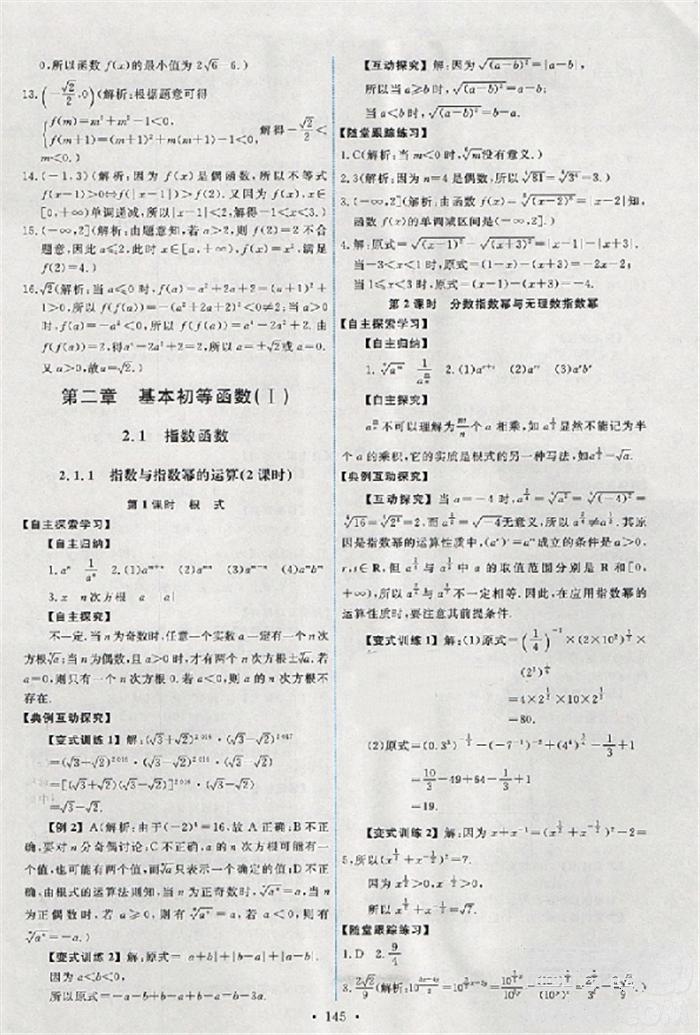 0,所以函数 f(x)的最小值为 2√6-6.)
13.(-√2/2,0)(解析:根据题意可得
{f(m)=m²+m²-1<0,
f(m+1)=(m+1)²+m(m+1)-1<0,
解得-√2/2<
m<0.)
14.(-1,3)(解析:因为 f(x)是偶函数,所以不等式
f(x-1)>0⇔f(|x-1|)>f(2).又因为 f(x)在
[0,+∞)单调递减,所以|x-1|<2,解得-1<x<3.)
15.(-∞,2](解析:由题意知,若 a>2,则 f(2)=2 不合
题意,因此 a≤2,此时 x∈[a,+∞),f(x)=x²,满足
f(2)=4.)
16.√2(解析:当 a≤0 时,f(a)=a²+2a+2=(a+1)²+
1>0,所以 f(f(a))=-(a²+2a+2)²<0≠2;当 a>0
时,f(a)=-a²<0,所以 f(f(a))=a⁴-2a²+2.由
f(f(a))=2,得 a⁴-2a²=0.所以 a=±√2 或 a=0.
又 a>0,故 a=√2.)
第二章 基本初等函数(Ⅰ)
2.1 指数函数
2.1.1 指数与指数幂的运算(2课时)
第1课时 根 式
【自主探索学习】
【自主归纳】
1.aⁿ 1/aⁿ 2.(1)aᵐ⁺ⁿ (2)aᵐⁿ (3)aᵐ⁻ⁿ (4)aᵐbᵐ
3.x n次方根 a |a|
【自主探究】
不一定.当 n 为奇数时,任意一个实数 a 一定有一个 n 次
方根ⁿ√a;当 n 为偶数,且 a>0 时,有两个 n 次方根±ⁿ√a.若
a=0,则有一个 n 次方根 0.若 a<0,则 a 的 n 次方根不
存在.
【典例互动探究】
【变式训练1】解:(√3+√2)²⁰¹⁶·(√3-√2)²⁰¹⁷
=(√3-√2)²⁰¹⁶·(√3+√2)²⁰¹⁶·(√3-√2)
=[(√3+√2)(√3-√2)]²⁰¹⁶·(√3-√2)
=√3-√2.
【例2】A(解析:由于(-2)⁴=16,故 A 正确;B 不正
确,要对 n 分奇偶讨论;C 不正确,a 的 n 次方根可能有一
个值,也可能有两个值,而ⁿ√a只表示一个确定的值;D 不正
确,由根式的运算法则知,当 n 为正奇数时,ⁿ√aⁿ=a,当 n
为正偶数时,若 a≥0,则有ⁿ√aⁿ=a,若 a<0,则有
ⁿ√aⁿ=-a.)
【变式训练2】解:原式= a+b|+|b-a|+|a-b|.
因为 a<b<0,
所以原式=-a-b+b-a+b-a=b-3a.
【互动探究】解:因为√(a-b)²=|a-b|,
所以当 a≥b时,√(a-b)²=a-b,
当 a<b时,√(a-b)²=b-a.
【随堂跟踪练习】
1.C(解析:当 m<0时,⁶√m没有意义.)
2.3(解析:因为 n=4是偶数,所以⁴√81=⁴√3⁴=3.)
3.(-∞,2](解析:由函数 f(x)=⁶√(x-2)⁶=|x-2|知,
函数 f(x)的单调减区间是(-∞,2].)
4.解:原式=√(x-1)²-√(x+3)²=|x-1|-|x+3|.
当-3<x<1时,原式=-(x-1)-(x+3)=-2x-2;
当1≤x<3时,原式=(x-1)-(x+3)=-4.
第2课时 分数指数幂与无理数指数幂
【自主探索学习】
【自主归纳】
1.ⁿ√aᵐ 1/a^(m/n) 2.(1)aʳ⁺ˢ (2)aʳˢ (3)aʳbʳ
【自主探究】
a^(m/n)不可以理解为m/n个 a 相乘,如 a^(1/2)显然不能记为半
个 a 的乘积,它的实质是根式的另一种写法,如 a^(1/2)=√a.
【典例互动探究】
因是指数幂的运算性质中,(aʳ)ˢ=aʳˢ成立的条件是 a>0,
所以不一定相等.因此,在应用指数幂的运
算性质时,要注意其前提条件.
【变式训练1】解:(1)原式=
=4×2^(1/2)×10×2^(3/2)
=80.
=10/3-49+64-1/3+1
=19.
【变式训练2】解:因为 x+x⁻¹=(x^(1/2)+x^(-1/2))²-2=
5,所以(x^(1/2)+x^(-1/2))²=7.
所以 x^(1/2)+x^(-1/2)=√7.
【随堂跟踪练习】
1.D 2.9/4
3.2√2/9
145